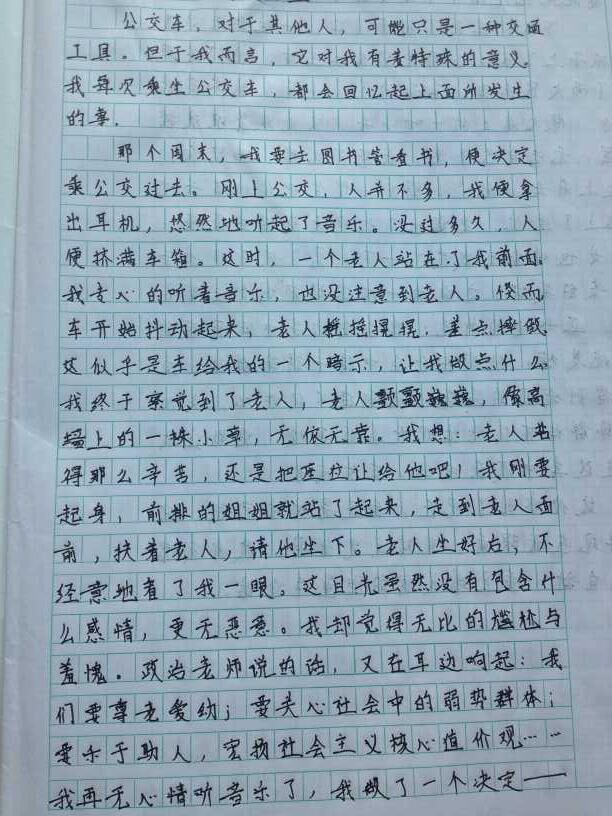 公交车，对于其他人，可能只是一种交通
工具。但于我而言，它对我有着特殊的意义。
我每次乘坐公交车，都会回忆起上面所发生
的事。
那个周末，我要去图书管看书，便决定
乘公交过去。刚上公交，人并不多，我便拿
出耳机，悠然地听起了音乐。没过多久，人
便挤满车箱。这时，一个老人站在了我前面。
我专心的听着音乐，也没注意到老人。倏而
车开始抖动起来，老人摇摇摆摆，差点摔倒。
这似乎是车给我的一个暗示，让我做点什么。
我终于察觉到了老人，老人颤颤巍巍，像高
墙上的一株小草，无依无靠。我想：老人站
得那么辛苦，还是把座位让给他吧！我刚要
起身，前排的姐姐就站了起来，走到老人面
前，扶着老人，请他坐下。老人坐好后，不
经意地看了我一眼。这目光虽然没有包含什
么感情，更无恶意。我却觉得无比的尴尬与
羞愧。政治老师说的话，又在耳边响起：我
们要尊老爱幼；要关心社会中的弱势群体；
要乐于助人，宏扬社会主义核心值价观……
我再无心情听音乐了，我做了一个决定——